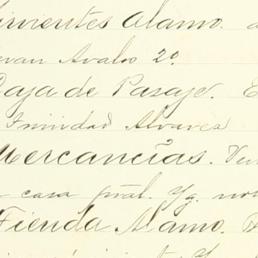 Sirvientes Alamo.
Juan Avalos 2º.
Caja de Pasaje. E
Trinidad Alvarez
Mercancías. Ven
casa pral. Yg. not
Tienda Alamo.